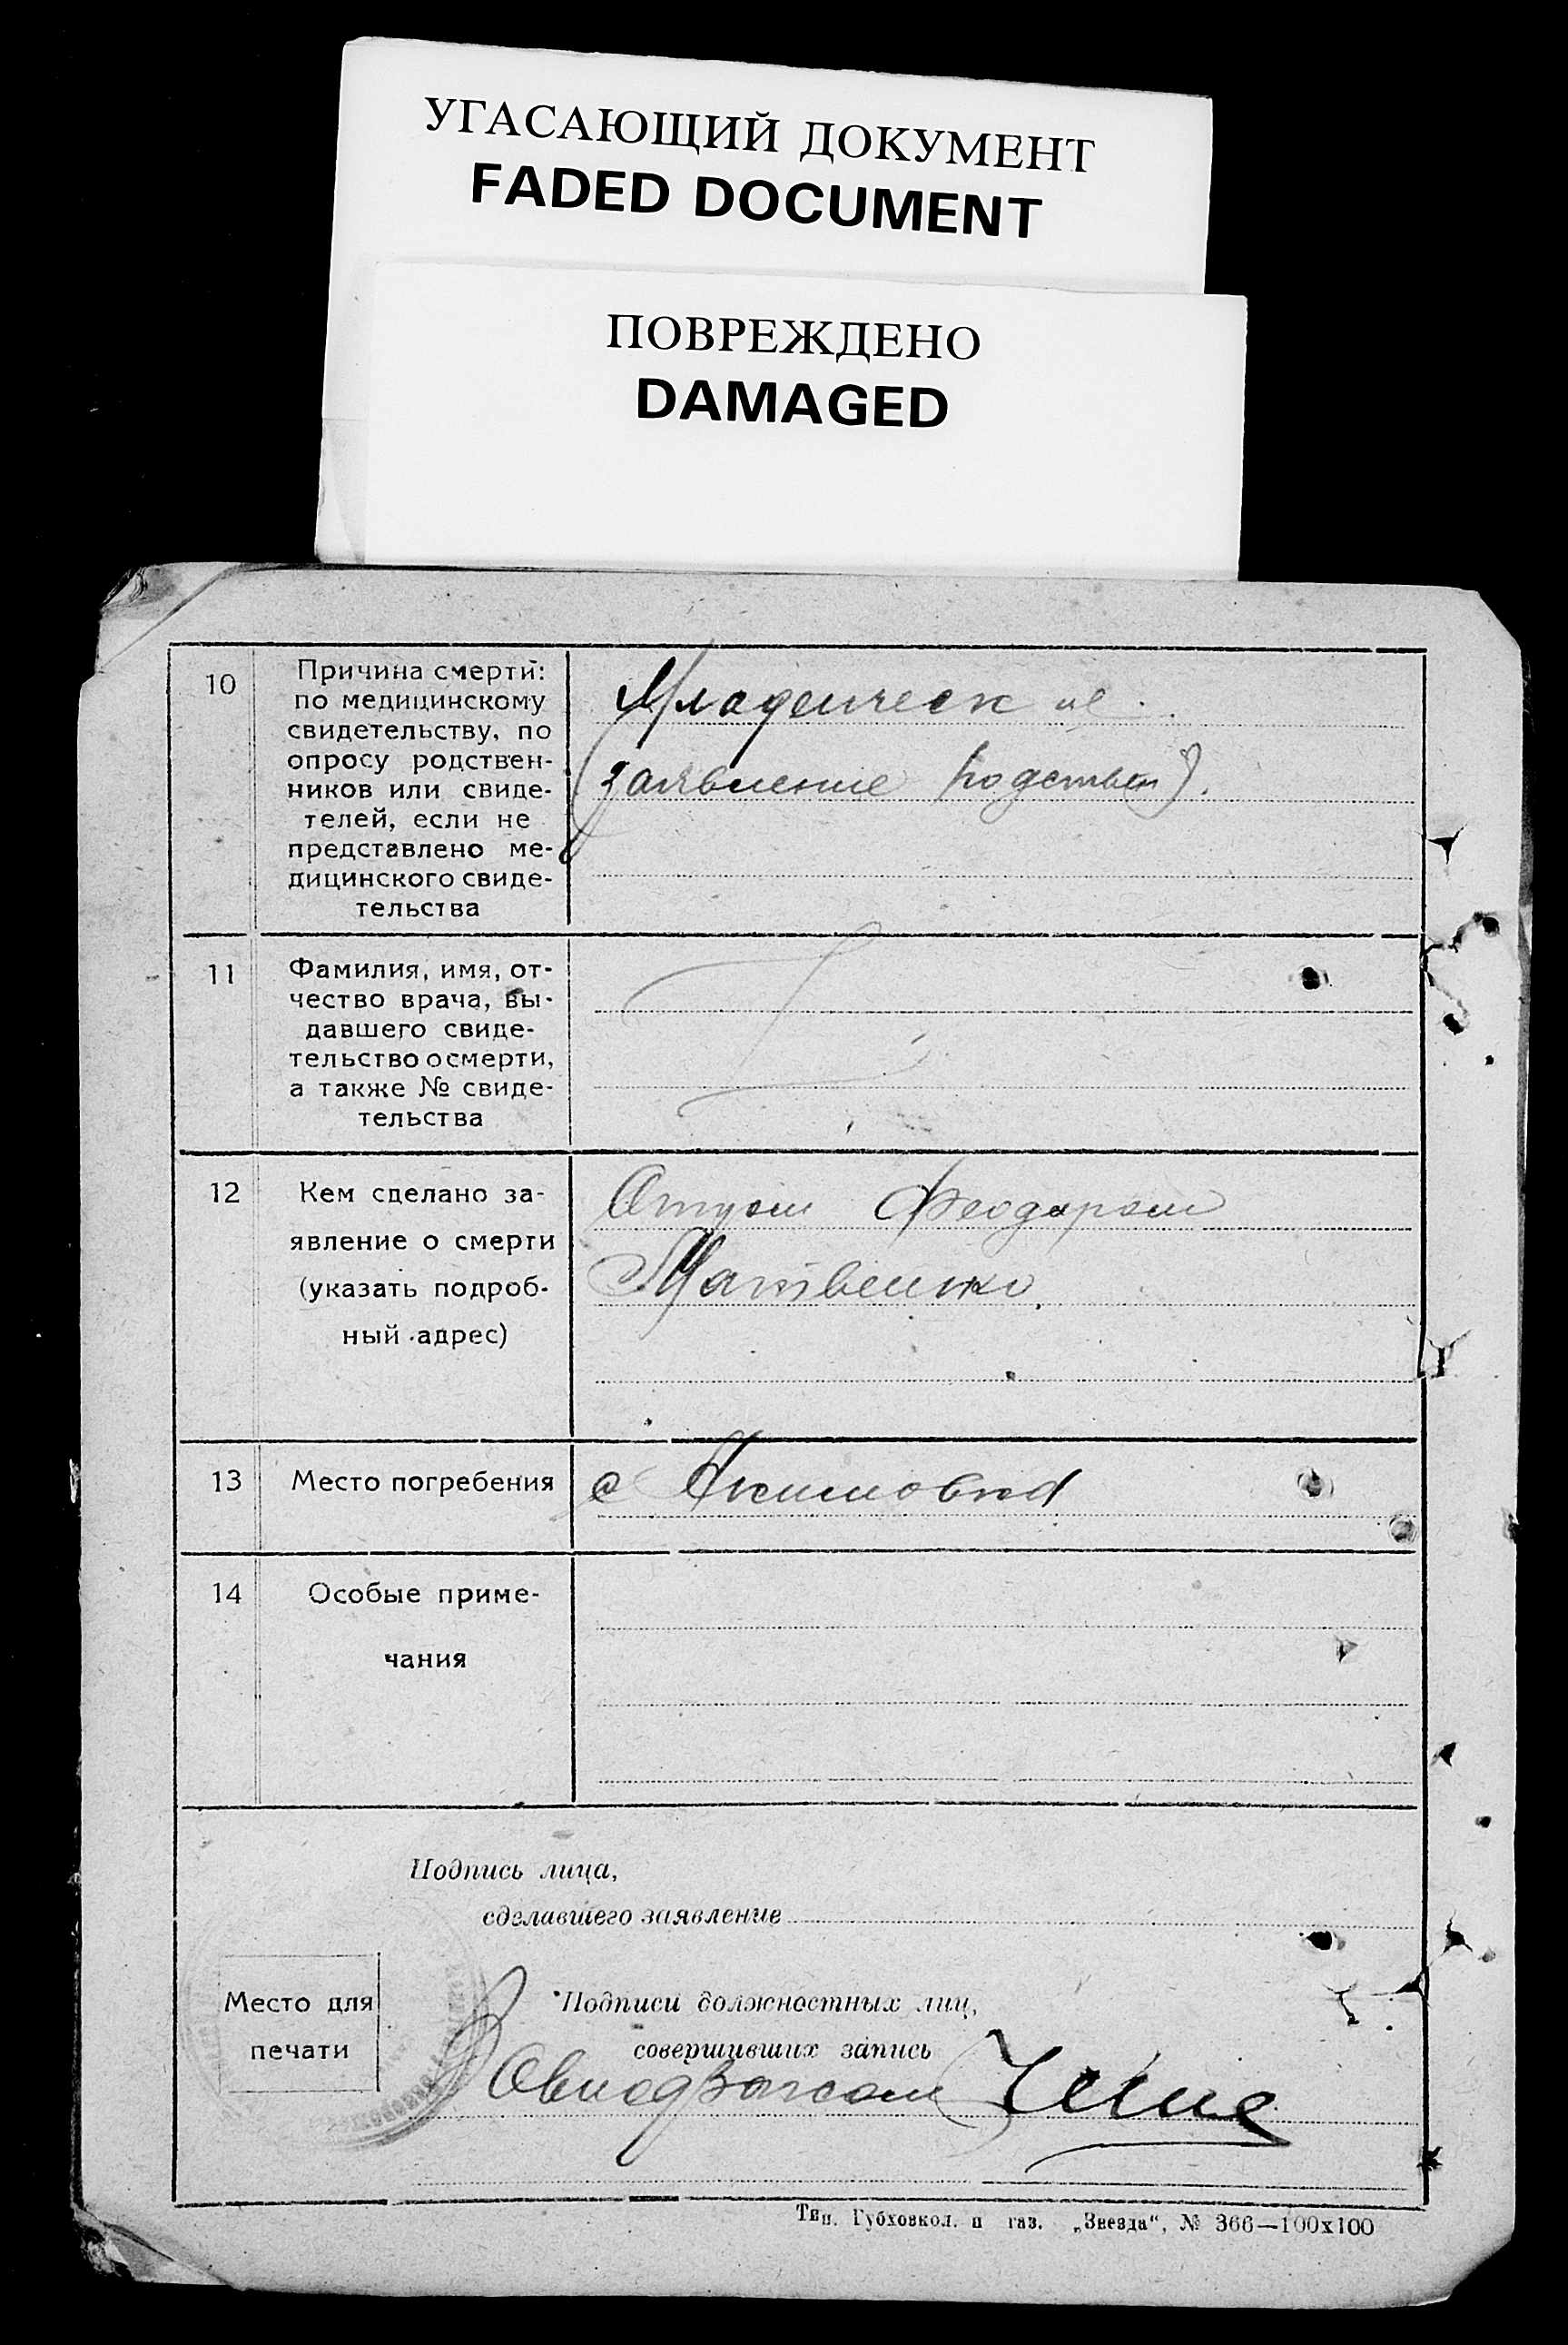 УГАСАЮЩИЙ ДОКУМЕНТ
FADED DOCUMENT
ПОВРЕЖДЕНО
DAMAGED
10
Причина смерти:
по медицинскому
свидетельству, по
опросу родствен-
ников или свиде-
телей, если не
представлено ме-
дицинского свиде-
тельства
Младенческ
(заявление родствен).
11
Фамилия, имя, от-
чество врача, вы-
давшего свиде-
тельство о смерти,
а также № свиде-
тельства
12
Кем сделано за-
явление о смерти
(указать подроб-
ный адрес)
Отцом Феодором
Матвеенко
13
Место погребения
с Акимовка
14
Особые приме-
чания
Подпись лица,
сделавшего заявление
Место для
печати
Подписи должностных лиц,
совершивших запись
Тип. Губховкол. и газ. „Звезда“, № 366—100х100